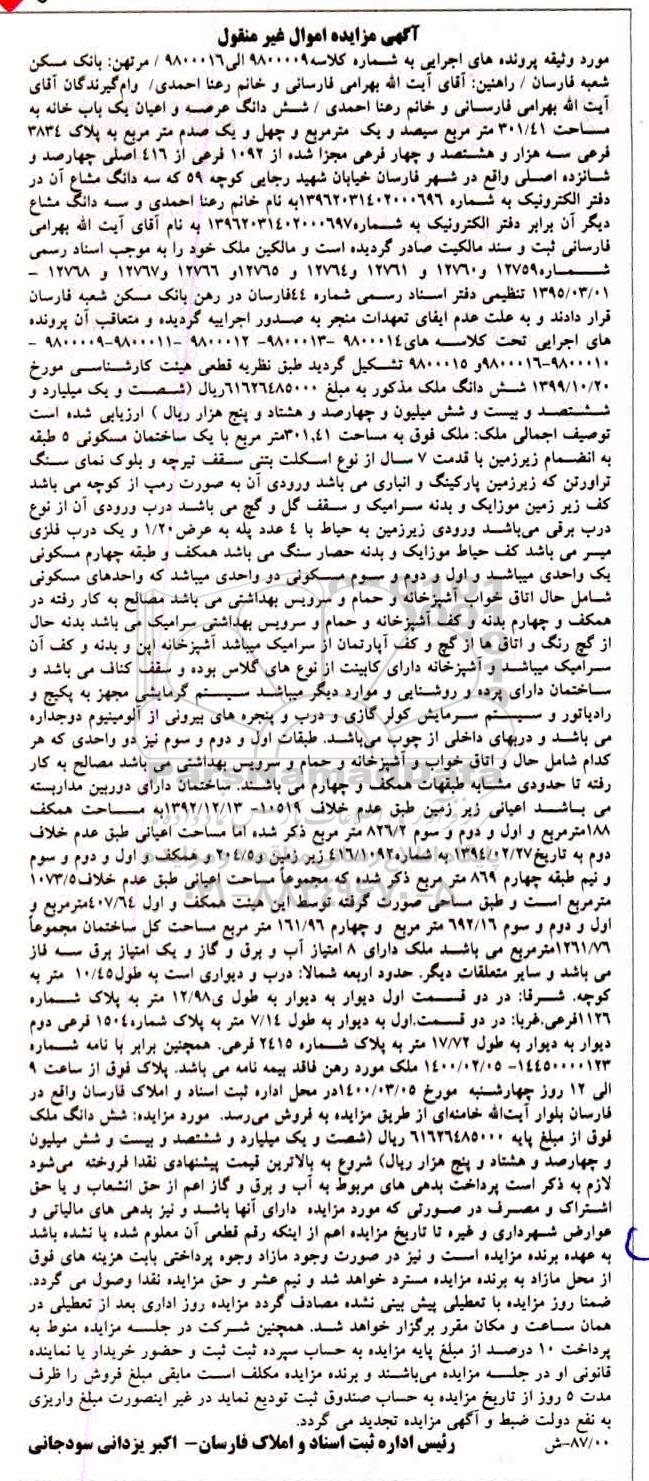 آگهی مزایده اموال غیر منقول
مورد وثیقه پرونده های اجرایی به شماره کلاسه۹۸۰۰۰۰۹ الی۹۸۰۰۰۱۶ / مرتهن: بانک مسکن
شعبه فارسان / راهنین: آقای آیت الله بهرامی فارسانی و خانم رعنا احمدی/ وام‌گیرندگان آقای
آیت الله بهرامی فارسانی و خانم رعنا احمدی / شش دانگ عرصه و اعیان یک باب خانه به
مساحت ۳۰۱/۴۱ متر مربع سیصد و یک مترمربع و چهل و یک صدم متر مربع به پلاک ۳۸۳۴
فرعی سه هزار و هشتصد و چهار فرعی مجزا شده از ۱۰۹۲ فرعی از ۴۱۶ اصلی چهارصد و
شانزده اصلی واقع در شهر فارسان خیابان شهید رجایی کوچه ۵۹ که سه دانگ مشاع آن در
دفتر الکترونیک به شماره ۱۳۹۶۲۰۳۱۴۰۲۰۰۰۶۹۶به نام خانم رعنا احمدی و سه دانگ مشاع
دیگر آن برابر دفتر الکترونیک به شماره۱۳۹۶۲۰۳۱۴۰۲۰۰۰۶۹۷ به نام آقای آیت الله بهرامی
فارسانی ثبت و سند مالکیت صادر گردیده است و مالکین ملک خود را به موجب اسناد رسمی
شماره۱۲۷۵۹ و۱۲۷۶۰ و ۱۲۷۶۱ و۱۲۷۶۴ و ۱۲۷۶۵و ۱۲۷۶۶ و۱۲۷۶۷ و ۱۲۷۶۸ –
۱۳۹۵/۰۳/۰۱ تنظیمی دفتر اسناد رسمی شماره ۴۴فارسان در رهن بانک مسکن شعبه فارسان
قرار دادند و به علت عدم ایفای تعهدات منجر به صدور اجراییه گردیده و متعاقب آن پرونده
های اجرایی تحت کلاسه های۹۸۰۰۰۱۴ –۹۸۰۰۰۱۳- ۹۸۰۰۰۱۲ –۹۸۰۰۰۱۱-۹۸۰۰۰۰۹ –
۹۸۰۰۰۱۰-۹۸۰۰۰۱۶و ۹۸۰۰۰۱۵ تشکیل گردید طبق نظریه قطعی هیئت کارشناسی مورخ
۱۳۹۹/۱۰/۲۰ شش دانگ ملک مذکور به مبلغ ۶۱۶۲۶۴۸۵۰۰۰ریال (شصت و یک میلیارد و
ششتصد و بیست و شش میلیون و چهارصد و هشتاد و پنج هزار ریال ) ارزیابی شده است
توصیف اجمالی ملک: ملک فوق به مساحت ۳۰۱,۴۱متر مربع با یک ساختمان مسکونی ۵ طبقه
به انضمام زیرزمین با قدمت ۷ سال از نوع اسکلت بتنی سقف تیرچه و بلوک نمای سنگ
تراورتن که زیرزمین پارکینگ و انباری می باشد ورودی آن به صورت رمپ از کوچه می باشد
کف زیر زمین موزایک و بدنه سرامیک و سقف گل و گچ می باشد درب ورودی آن از نوع
درب برقی می‌باشد ورودی زیرزمین به حیاط با ۴ عدد پله به عرض۱/۲۰ و یک درب فلزی
میر می باشد کف حیاط موزایک و بدنه حصار سنگ می باشد همکف و طبقه چهارم مسکونی
یک واحدی میباشد و اول و دوم و سوم مسکونی دو واحدی میباشد که واحدهای مسکونی
شامل حال اتاق خواب آشپزخانه و حمام و سرویس بهداشتی می باشد مصالح به کار رفته در
همکف و چهارم بدنه و کف آشپزخانه و حمام و سرویس بهداشتی سرامیک می باشد بدنه حال
از گچ رنگ و اتاق ها از گچ و کف آپارتمان از سرامیک میباشد آشپزخانه اپن و بدنه و کف آن
سرامیک میباشد و آشپزخانه دارای کابینت از نوع های گلاس بوده و سقف کناف می باشد و
ساختمان دارای پرده و روشنایی و موارد دیگر میباشد سیستم گرمایشی مجهز به پکیج و
رادیاتور و سیستم سرمایش کولر گازی و درب و پنجره های بیرونی از آلومینیوم دوجداره
می باشد و دربهای داخلی از چوب می‌باشد. طبقات اول و دوم و سوم نیز دو واحدی که هر
کدام شامل حال و اتاق خواب و آشپزخانه و حمام و سرویس بهداشتی می باشد مصالح به کار
رفته تا حدودی مشابه طبقهات همکف و چهارم می باشند. ساختمان دارای دوربین مداربسته
می باشد اعیانی زیر زمین طبق عدم خلاف ۱۰۵۱۹- ۱۳۹۲/۱۲/۱۳به مساحت همکف
۱۸۸مترمربع و اول و دوم و سوم ۸۲۶/۲ متر مربع ذکر شده اما مساحت اعیانی طبق عدم خلاف
دوم به تاریخ۱۳۹۴/۰۲/۲۷ به شماره۴۱۶/۱۰۹۲ زیر زمین و۲۰۴/۵ و همکف و اول و دوم و سوم
و نیم طبقه چهارم ۸۶۹ متر مربع ذکر شده که مجموعاً مساحت اعیانی طبق عدم خلاف۱۰۷۳/۵
مترمربع است و طبق مساحی صورت گرفته توسط این هیئت همکف و اول ۴۰۷/۶۴مترمربع و
اول و دوم و سوم ۶۹۲/۱۶ متر مربع و چهارم ۱۶۱/۹۶ متر مربع مساحت کل ساختمان مجموعاً
۱۲۶۱/۷۶مترمربع می باشد ملک دارای ۸ امتیاز آب و برق و گاز و یک امتیاز برق سه فاز
می باشد و سایر متعلقات دیگر. حدود اربعه شمالا: درب و دیواری است به طول۱۰/۴۵ متر به
کوچه. شرقا: در دو قسمت اول دیوار به دیوار به طول ی۱۲/۹۸ متر به پلاک شماره
۱۱۲۶فرعی.غربا: در دو قسمت.اول به دیوار به طول ۷/۱۴ متر به پلاک شماره۱۵۰۴ فرعی دوم
دیوار به دیوار به طول ۱۷/۷۲ متر به پلاک شماره ۲۴۱۵ فرعی. همچنین برابر با نامه شماره
۱۴۴۵۰۰۰۰۱۲۳- ۱۴۰۰/۰۲/۰۵ ملک مورد رهن فاقد بیمه نامه می باشد. پلاک فوق از ساعت ۹
الی ۱۲ روز چهارشنبه مورخ ۱۴۰۰/۰۳/۰۵در محل اداره ثبت اسناد و املاک فارسان واقع در
فارسان بلوار آیت‌الله خامنه‌ای از طریق مزایده به فروش می‌رسد. مورد مزایده: شش دانگ ملک
فوق از مبلغ پایه ۶۱۶۲۶۴۸۵۰۰۰ ریال (شصت و یک میلیارد و ششتصد و بیست و شش میلیون
و چهارصد و هشتاد و پنج هزار ریال) شروع به بالاترین قیمت پیشنهادی نقدا فروخته می‌شود
لازم به ذکر است پرداخت بدهی های مربوط به آب و برق و گاز اعم از حق انشعاب و یا حق
اشتراک و مصرف در صورتی که مورد مزایده دارای آنها باشد و نیز بدهی های مالیاتی و
عوارض شهرداری و غیره تا تاریخ مزایده اعم از اینکه رقم قطعی آن معلوم شده یا نشده باشد
به عهده برنده مزایده است و نیز در صورت وجود مازاد وجوه پرداختی بابت هزینه های فوق
از محل مازاد به برنده مزایده مسترد خواهد شد و نیم عشر و حق مزایده نقدا وصول می گردد.
ضمنا روز مزایده با تعطیلی پیش بینی نشده مصادف گردد مزایده روز اداری بعد از تعطیلی در
همان ساعت و مکان مقرر برگزار خواهد شد. همچنین شرکت در جلسه مزایده منوط به
پرداخت ۱۰ درصد از مبلغ پایه مزایده به حساب سپرده ثبت ثبت و حضور خریدار یا نماینده
قانونی او در جلسه مزایده می‌باشند و برنده مزایده مکلف است مابقی مبلغ فروش را ظرف
مدت ۵ روز از تاریخ مزایده به حساب صندوق ثبت تودیع نماید در غیر اینصورت مبلغ واریزی
به نفع دولت ضبط و آگهی مزایده تجدید می گردد.
۸۷/۰۰–ش رئیس اداره ثبت اسناد و املاک فارسان– اکبر یزدانی سودجانی
ParsNamadData
۰۲۱-۸۸۳۴۹۶۷۰-۸